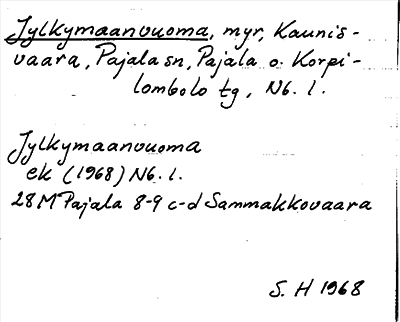 Jylkymaanvuoma, myr, Kaunis-
vaara, Pajala sn, Pajala o. Korpi-
lombolo tg, Nb. l.
Jylkymaanvuoma
ek (1968) Nb. l.
28M Pajala 8-9 c-d Sammakkovaara
S. H 1968